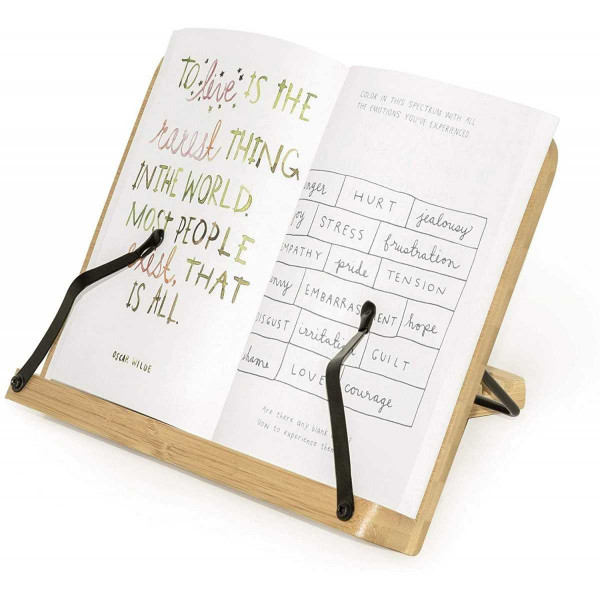 TO "live" IS THE
rarest THING
IN THE WORLD.
MOST PEOPLE
exist, THAT
IS ALL.
OSCAR WILDE
COLOR IN THIS SPECTRUM WITH ALL
THE EMOTIONS YOU'VE EXPERIENCED.
nger HURT jealousy
oy STRESS frustration
MPATHY pride TENSION
nvy EMBARRAS ENT hope
DISGUST irritati GUILT
shame LOVE courage
Are there any blank
How to experience them